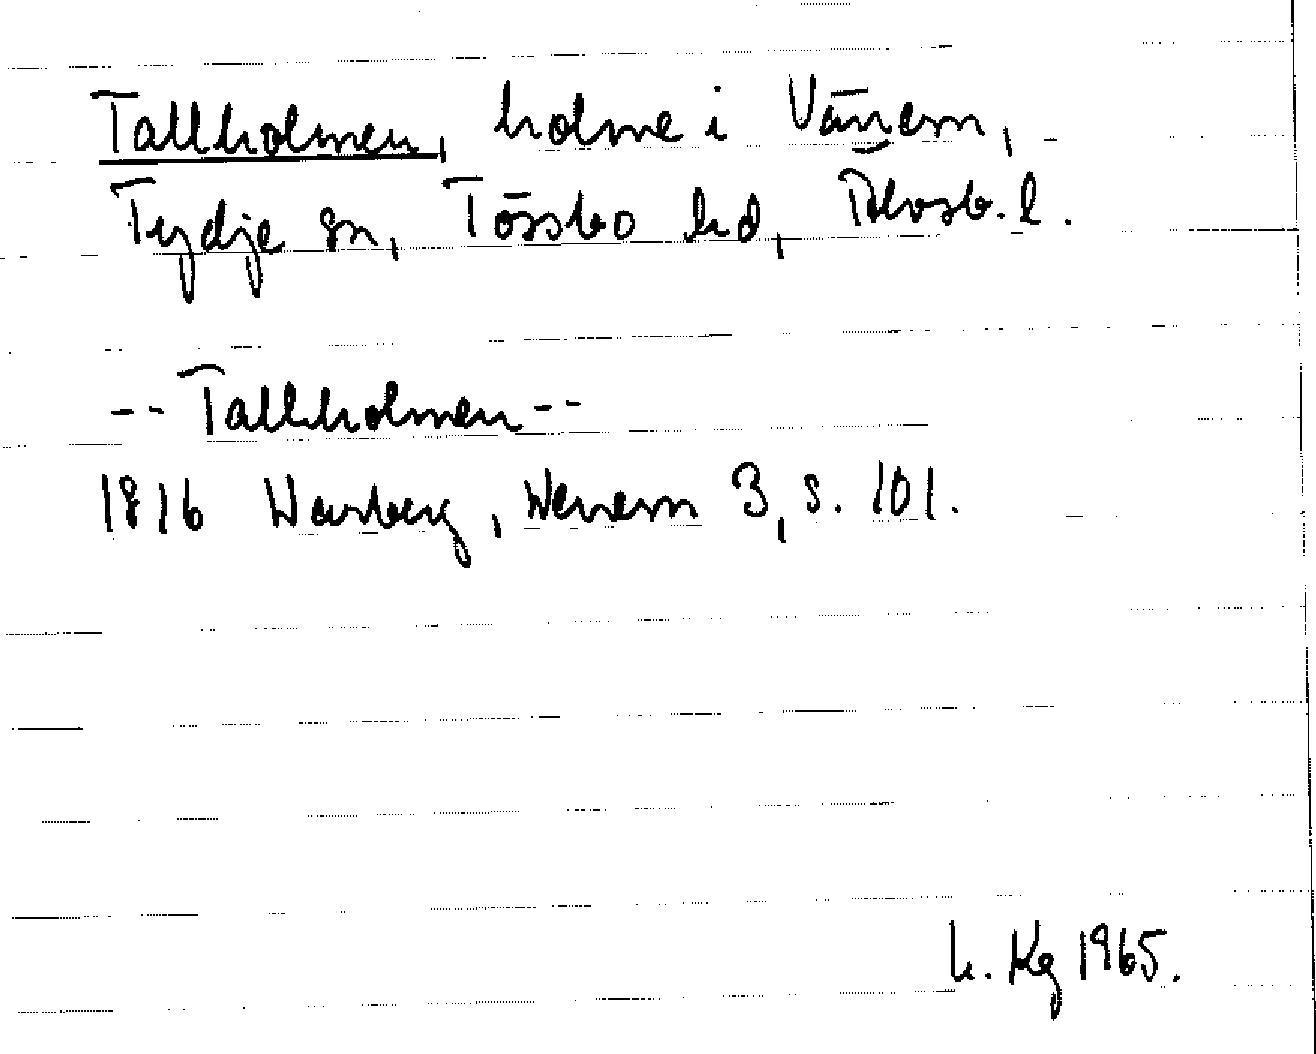 Tallholmen, holme i Vänern,
Tydje sn, Tössbo hd, Älvsb. l.
-- Tallholmen --
1816 Warberg, Wenern 3, s. 101.
h. Kg 1965.